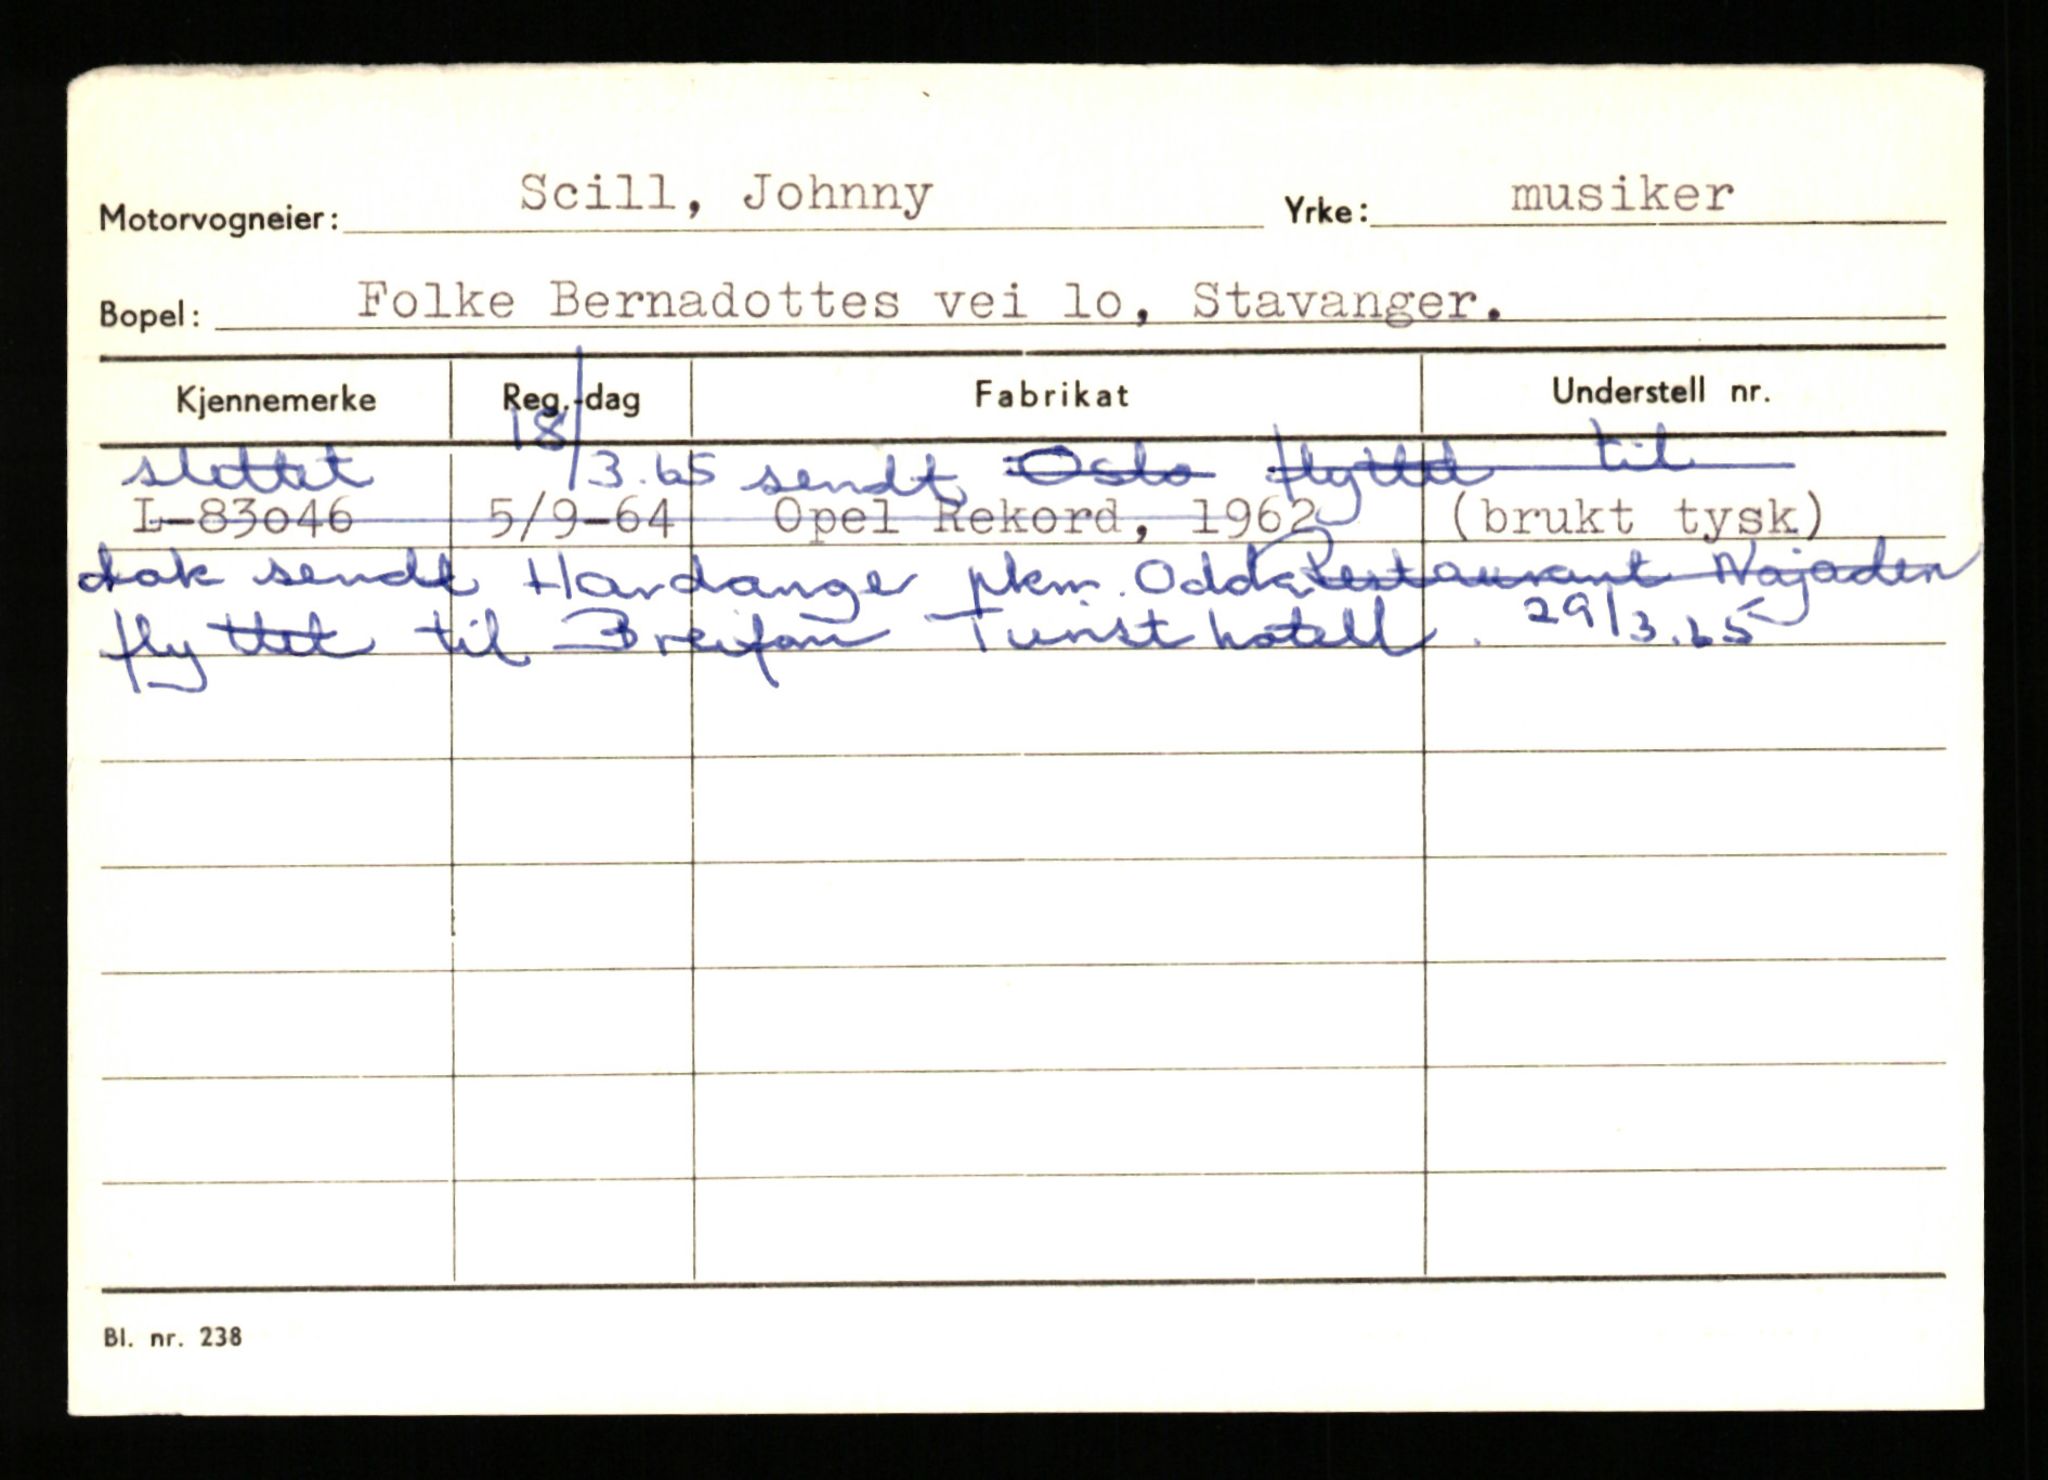 Motorvogneier: Scill, Johnny Yrke: musiker
Bopel: Folke Bernadottes vei lo, Stavanger.
Kjennemerke Reg.-dag Fabrikat Understell nr.
slettet 18/3.65 sendt Oslo flyttet til
L-83o46 5/9-64 Opel Rekord, 1962 (brukt tysk)
dok sendt Hardanger pkm. Odda Restaurant Najaden
flyttet til Breifon Turisthotell. 29/3.65
Bl. nr. 238